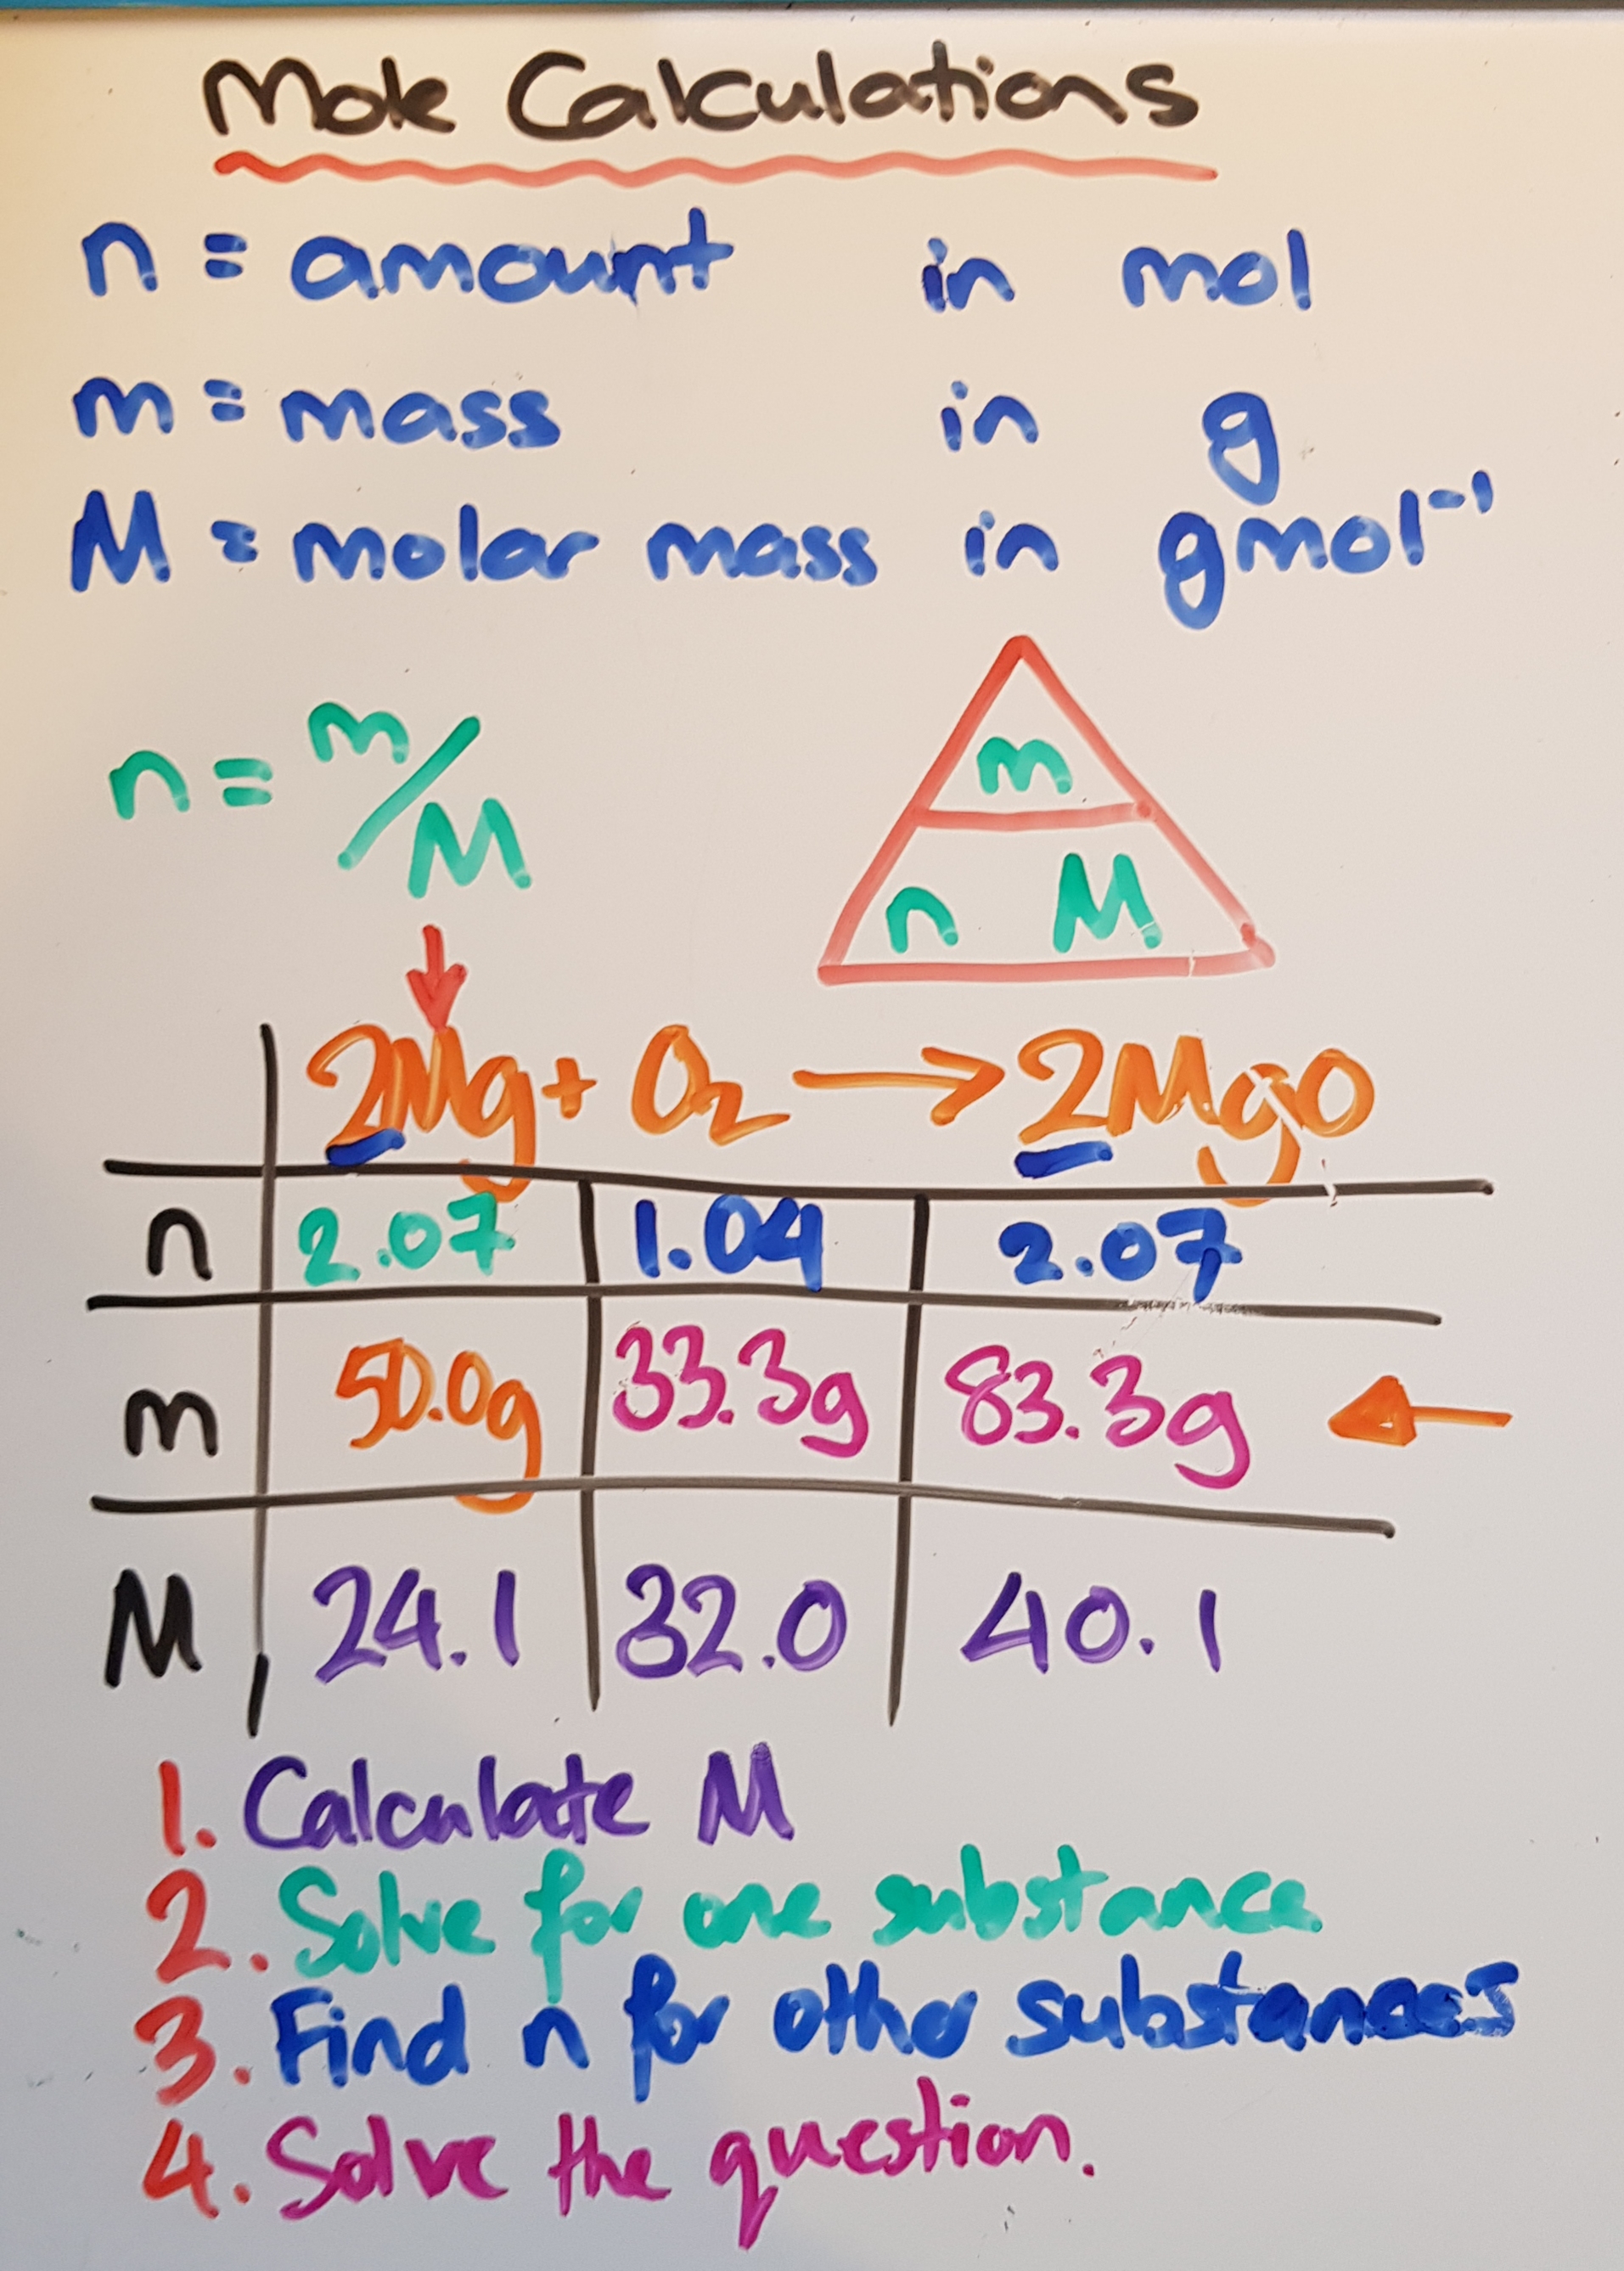 Mole Calculations
n = amount in mol
m = mass in g
M = molar mass in gmol⁻¹
n = m/M
m
n M
2Mg + O₂ → 2MgO
n 2.07 1.04 2.07
m 50.0g 33.3g 83.3g
M 24.1 32.0 40.1
1. Calculate M
2. Solve for one substance
3. Find n for other substances
4. Solve the question.